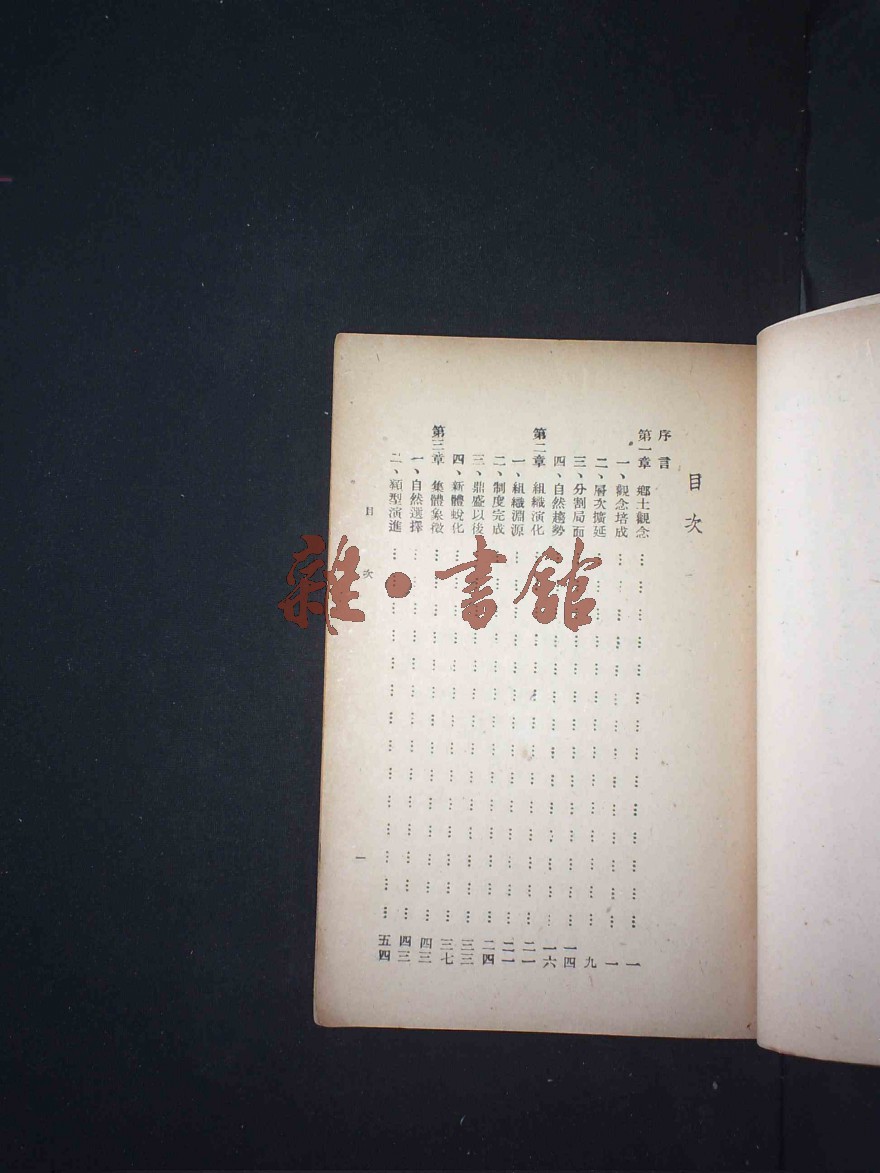 目次
序言
第一章 鄉土觀念……………………………………一
一、觀念培成……………………………………一
二、層次擴延……………………………………九
三、分割局面……………………………………一四
四、自然趨勢……………………………………一六
第二章 組織演化……………………………………二一
一、組織淵源……………………………………二一
二、制度完成……………………………………二四
三、鼎盛以後……………………………………三三
四、新體蛻化……………………………………三七
第三章 集體象徵……………………………………四三
一、自然選擇……………………………………四三
二、類型演進……………………………………五四
目次
一
雜·書館